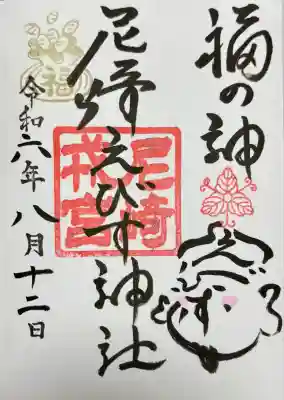 福の神
えびす
尼崎えびす神社
尼崎戎宮
福
令和六年八月十二日